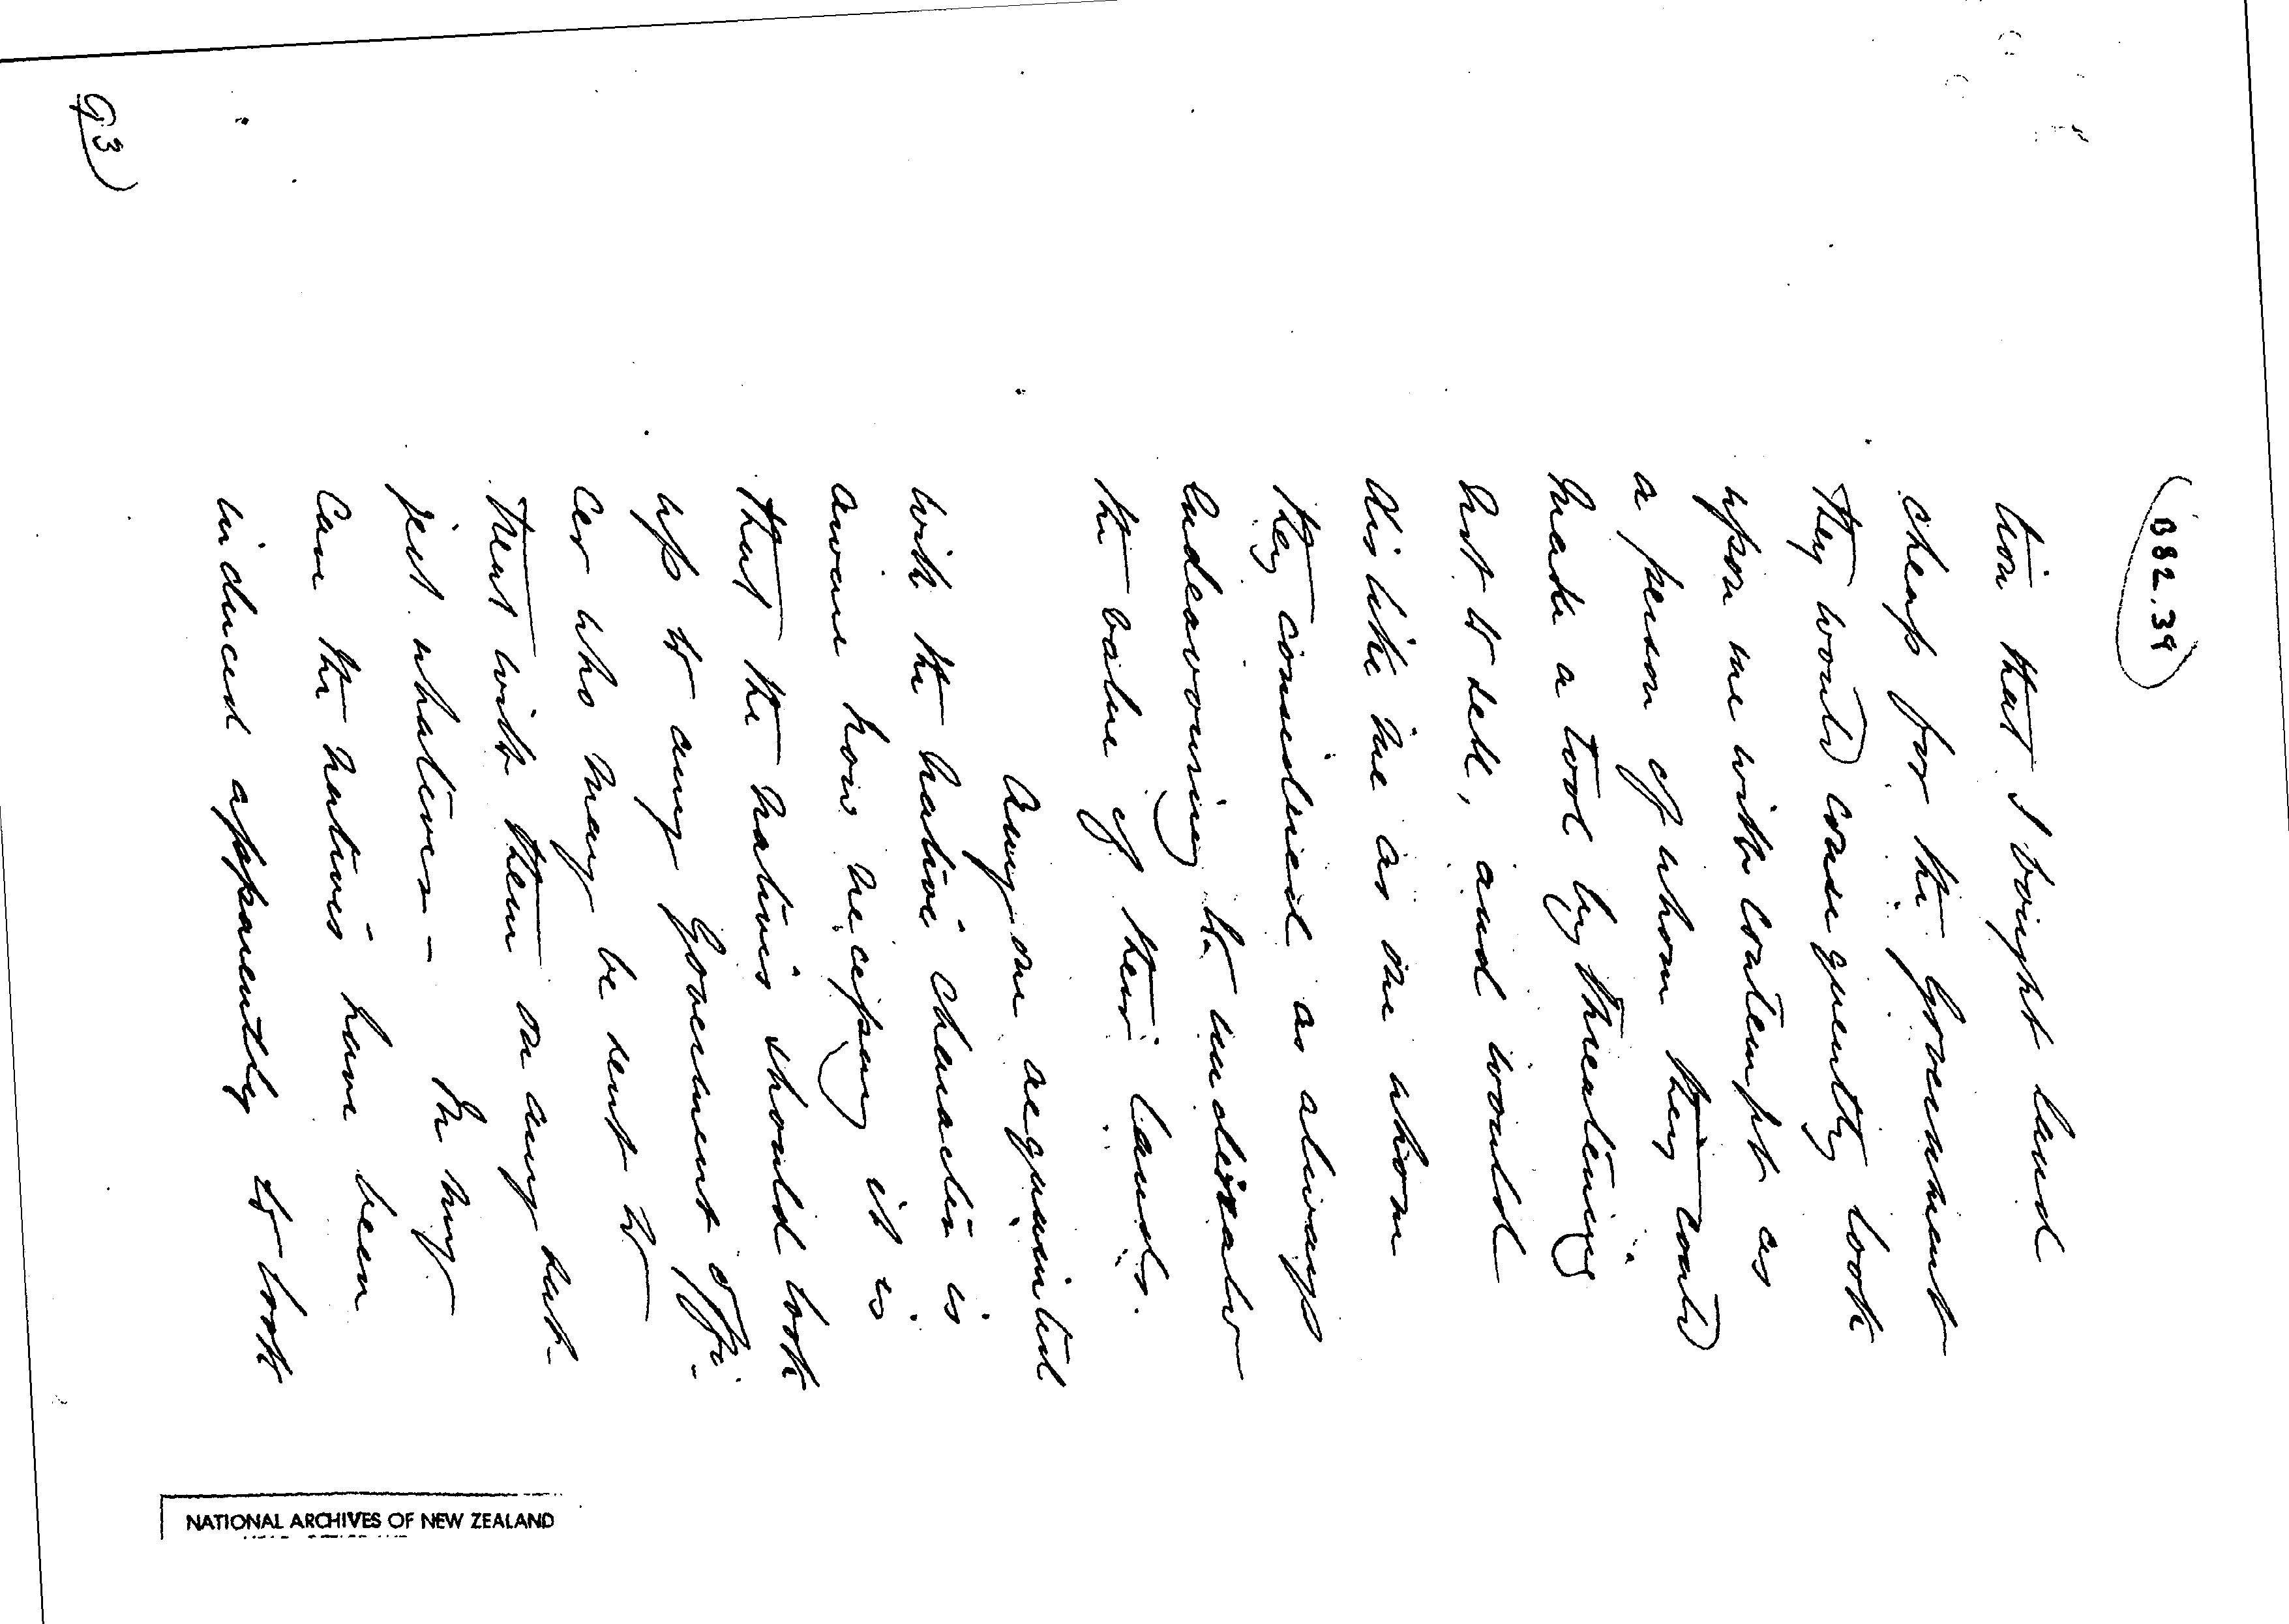 B82.39
tion that I bought land
cheap for the Government
they would consequently look
upon me with contempt as
a person of whom they could
make a tool by threatening
not to sell, and would
dislike me as one whom
they considered as always
endeavouring to undervalue
the value of their lands.
Any one acquainted
with the native character is
aware how necessary it is
that the natives should look
up to any Government offi-
cer who may be sent to
treat with them on any sub-
ject whatever - In my
case the natives have been
induced apparently to look
93)
NATIONAL ARCHIVES OF NEW ZEALAND